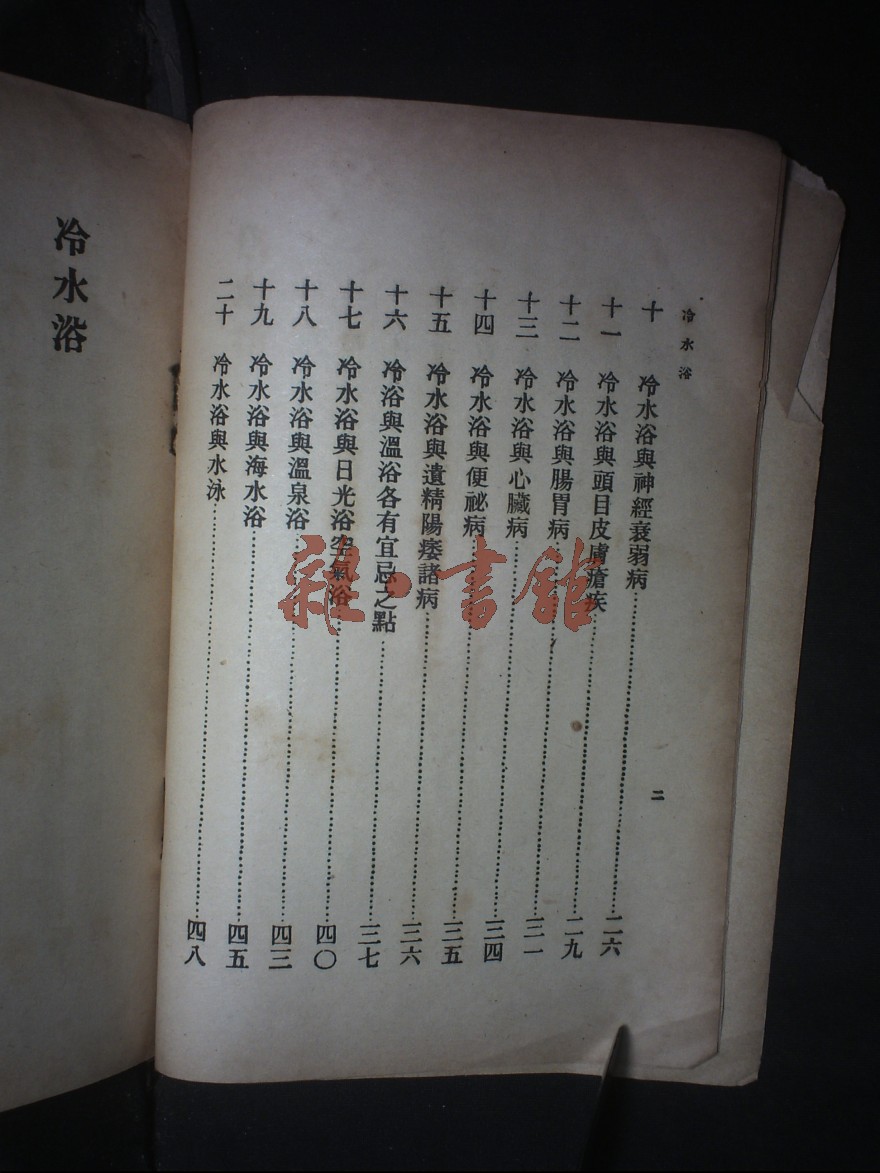 冷水浴
二
十 冷水浴與神經衰弱病……二六
十一 冷水浴與頭目皮膚瘡疾……二九
十二 冷水浴與腸胃病……三一
十三 冷水浴與心臟病……三四
十四 冷水浴與便祕病……三五
十五 冷水浴與遺精陽痿諸病……三六
十六 冷浴與溫浴各有宜忌之點……三七
十七 冷水浴與日光浴空氣浴……四〇
十八 冷水浴與溫泉浴……四三
十九 冷水浴與海水浴……四五
二十 冷水浴與水泳……四八
冷水浴
雜·書館